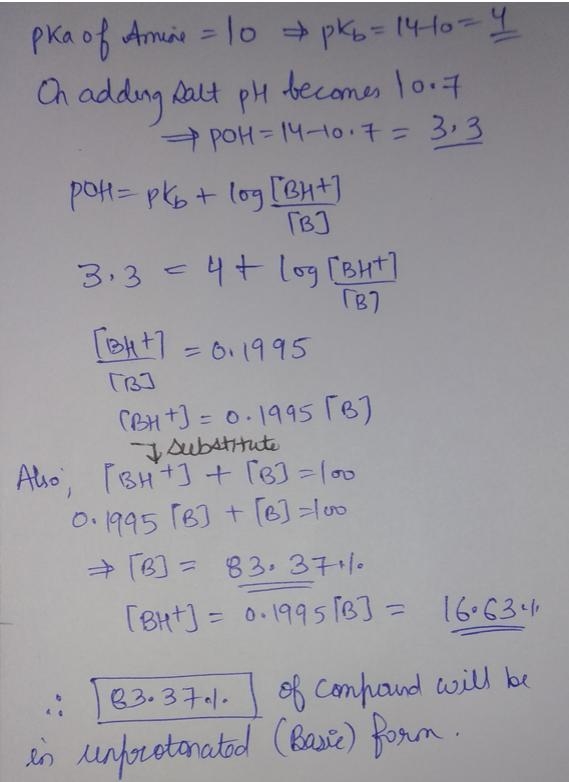 pKa of Amine = 10 ⇒ pKb = 14-10 = 4
On adding salt pH becomes 10.7
⇒ pOH = 14-10.7 = 3.3
pOH = pKb + log [BH+]
[B]
3.3 = 4 + log [BH+]
[B]
[BH+] = 0.1995
[B]
[BH+] = 0.1995 [B]
↓ substitute
Also, [BH+] + [B] = 100
0.1995 [B] + [B] = 100
⇒ [B] = 83.37%
[BH+] = 0.1995 [B] = 16.63%
∴ 83.37% of compound will be
in unprotonated (Basic) form.